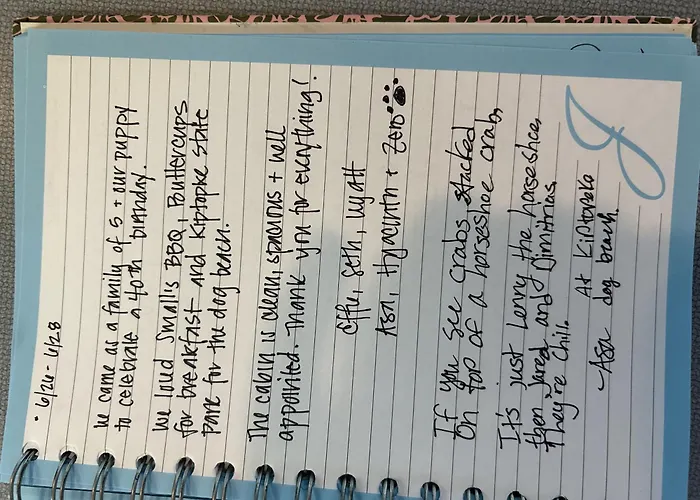 · 6/26 - 6/28
We came as a family of 5 + our puppy
to celebrate a 40th birthday.
We loved Smalls BBQ, Buttercups
for breakfast and Kiptopke state
park for the dog beach.
The cabin is clean, spacious + well
appointed. Thank you for everything!
Effie, Seth, Wyatt
Asa, Hyacinth + Zero
If you see crabs stacked
On top of a horseshoe crab,
It's just Lenny the horseshoe,
then Jared and Dimitrius.
They're chill.
-Asa At Kiptopeke
dog beach.
J